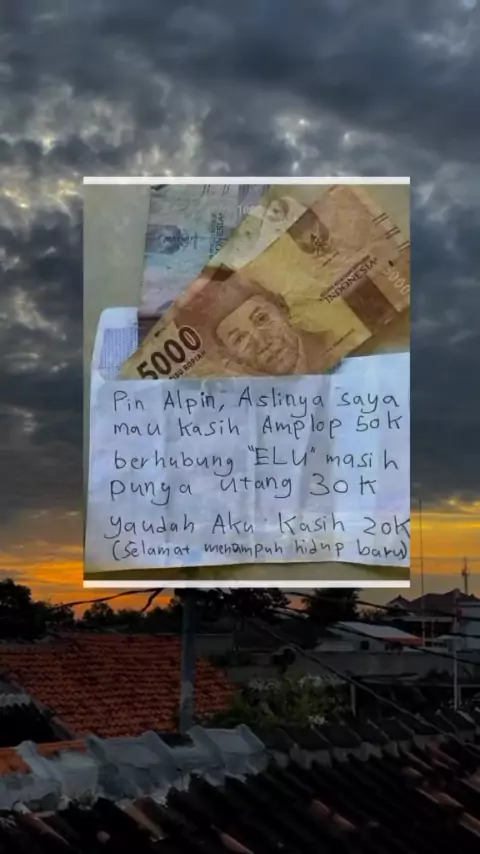 5000
INDONESIA
5000
Pin Alpin, Aslinya saya
mau kasih Amplop 50K
berhubung "ELU" masih
punya utang 30K
yaudah Aku kasih 20K
(Selamat menampuh hidup baru)